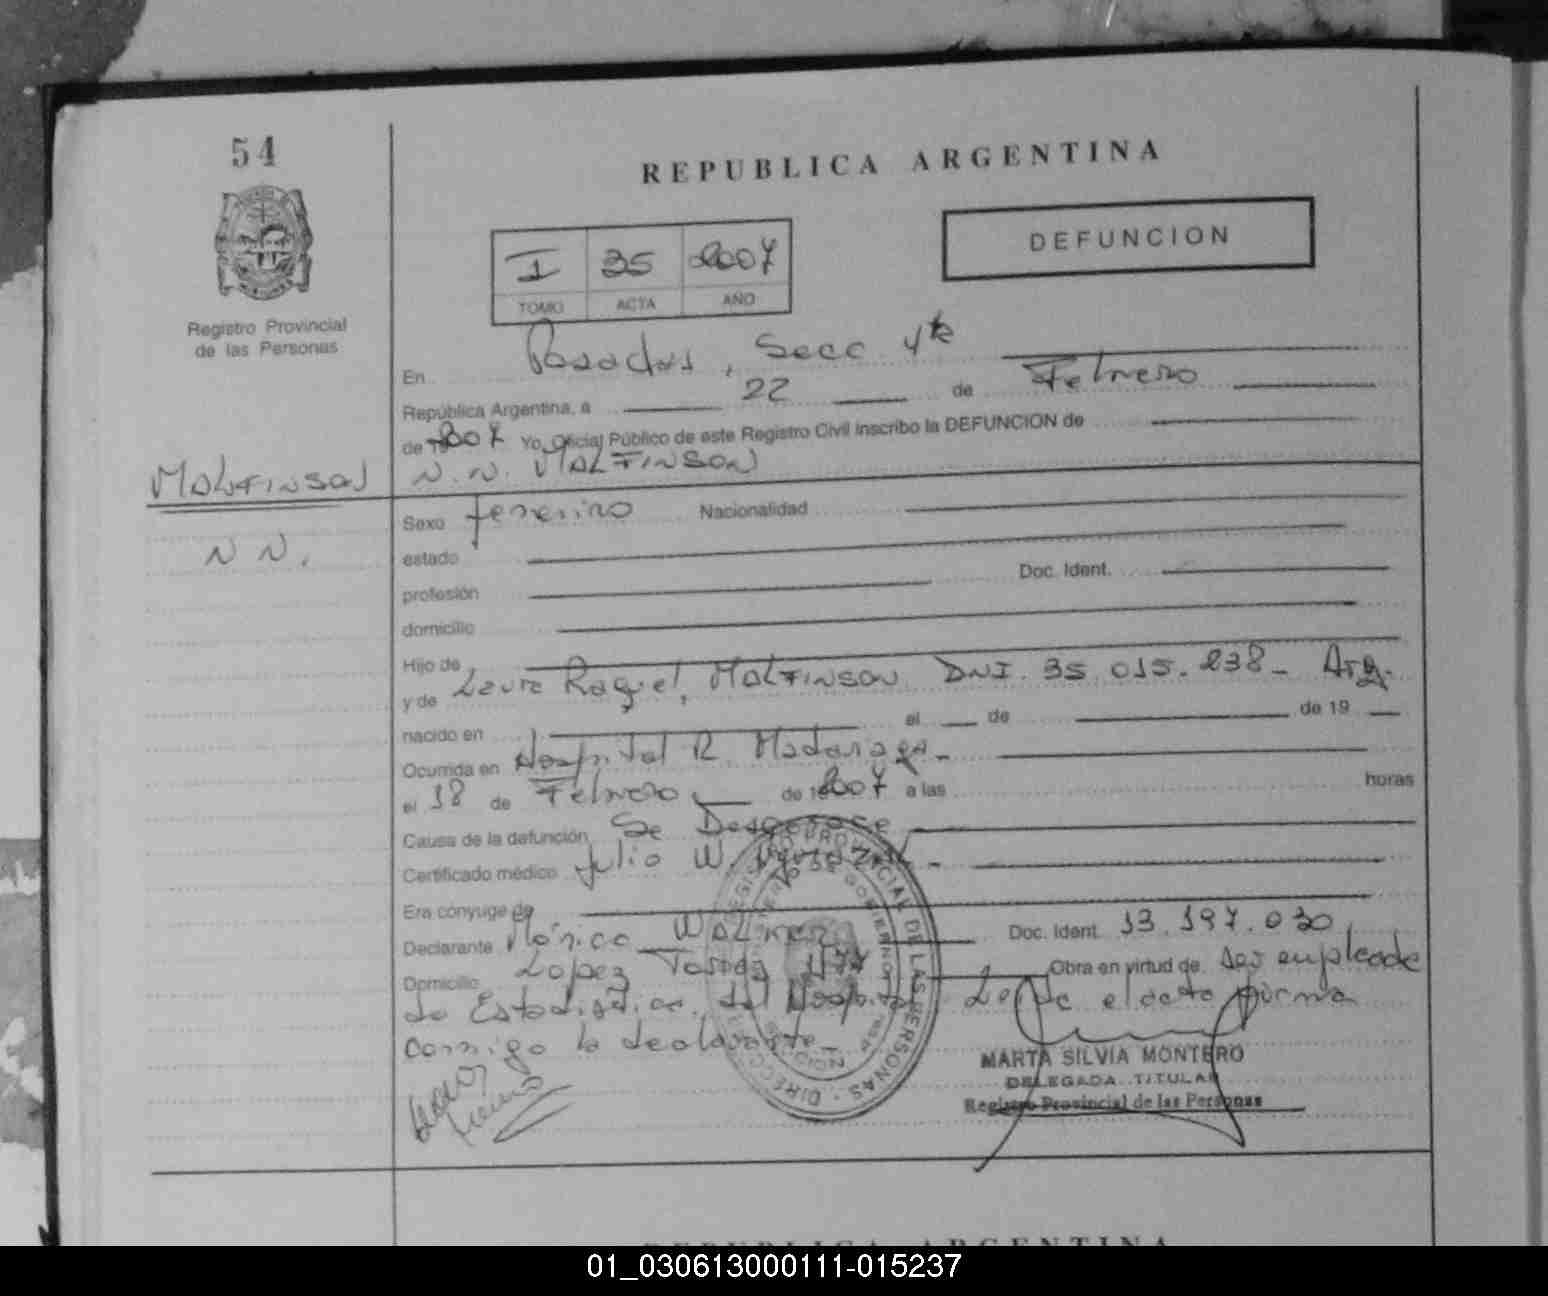 54
REPUBLICA ARGENTINA
DEFUNCION
I 35 2007
TOMO ACTA AÑO
Registro Provincial
de las Personas
En Posadas, Secc 4ta
República Argentina, a 22 de Febrero
de 19 2007 Yo, Oficial Público de este Registro Civil inscribo la DEFUNCION de
MALFINSON N.N. MALFINSON
N N.
Sexo femenino Nacionalidad
estado
profesión Doc. Ident.
domicilio
Hijo de
y de Laura Raquel, MALFINSON DNI. 35.015.238- Arg.
nacido en el de de 19
Ocurrida en Hospital R. Madariaga-
el 18 de Febrero de 19 2007 a las horas
Causa de la defunción Se Desconoce
Certificado médico Julio W.
Era cónyuge de
Declarante Mónica Doc. Ident. 13.197.030
Domicilio Lopez Torres Obra en virtud de ser empleada
de Estadística del Hospital Leída el acta firma
conmigo la declarante-
REGISTRO PROVINCIAL DE LAS PERSONAS
MARTA SILVIA MONTERO
DELEGADA TITULAR
Registro Provincial de las Personas
REPUBLICA ARGENTINA
01_030613000111-015237